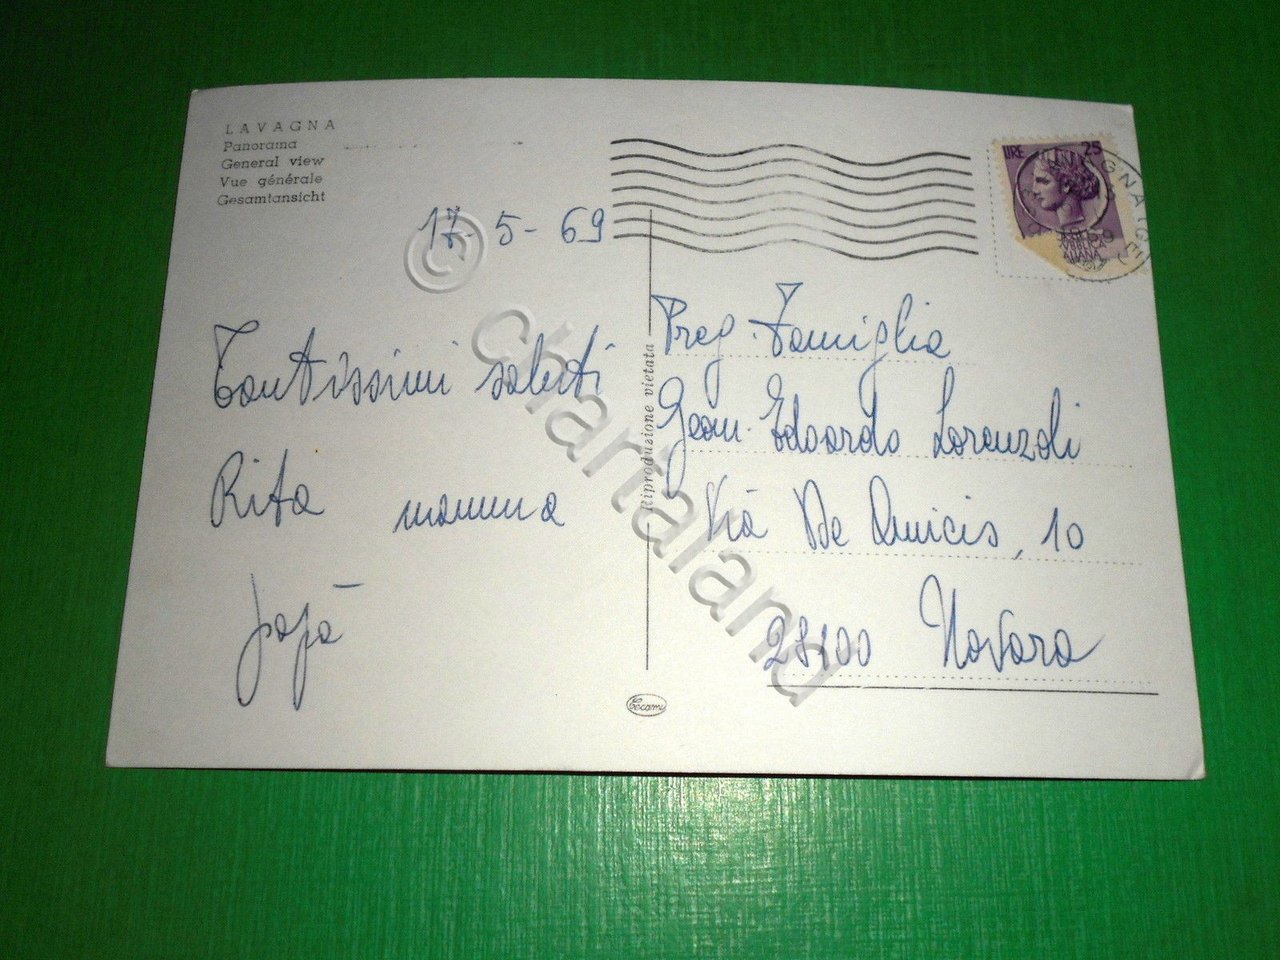 LAVAGNA
Panorama
General view
Vue générale
Gesamtansicht
17-5-69
Tantissimi saluti
Rita mamma
papà
Riproduzione vietata
Cecami
LIRE 25
REPUBBLICA
ITALIANA
Preg. Famiglia
Geom. Edoardo Lorenzoli
Via De Amicis, 10
28100 Novara
© chartaland